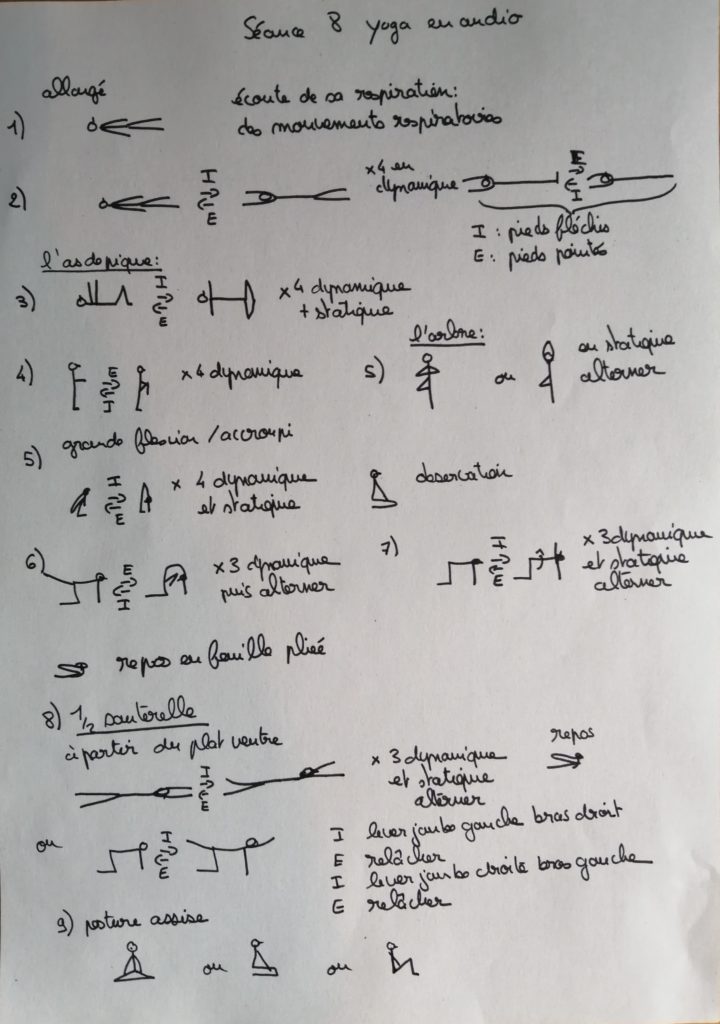 Séance 8 yoga en audio
allongé
1) écoute de sa respiration:
des mouvements respiratoires
2) I E ×4 en dynamique E I
I : pieds fléchis
E : pieds pointés
l'as de pique:
3) I E ×4 dynamique
+ statique
4) E I ×4 dynamique
l'arbre:
5) ou en statique
alterner
5) grande flexion / accroupi
I E × 4 dynamique
et statique
observation
6) E I ×3 dynamique
puis alterner
7) I E ×3 dynamique
et statique
alterner
repos en feuille pliée
8) 1/2 sauterelle
à partir du plat ventre
I E × 3 dynamique
et statique
alterner
repos
ou I E
I lever jambe gauche bras droit
E relâcher
I lever jambe droite bras gauche
E relâcher
9) posture assise
ou ou